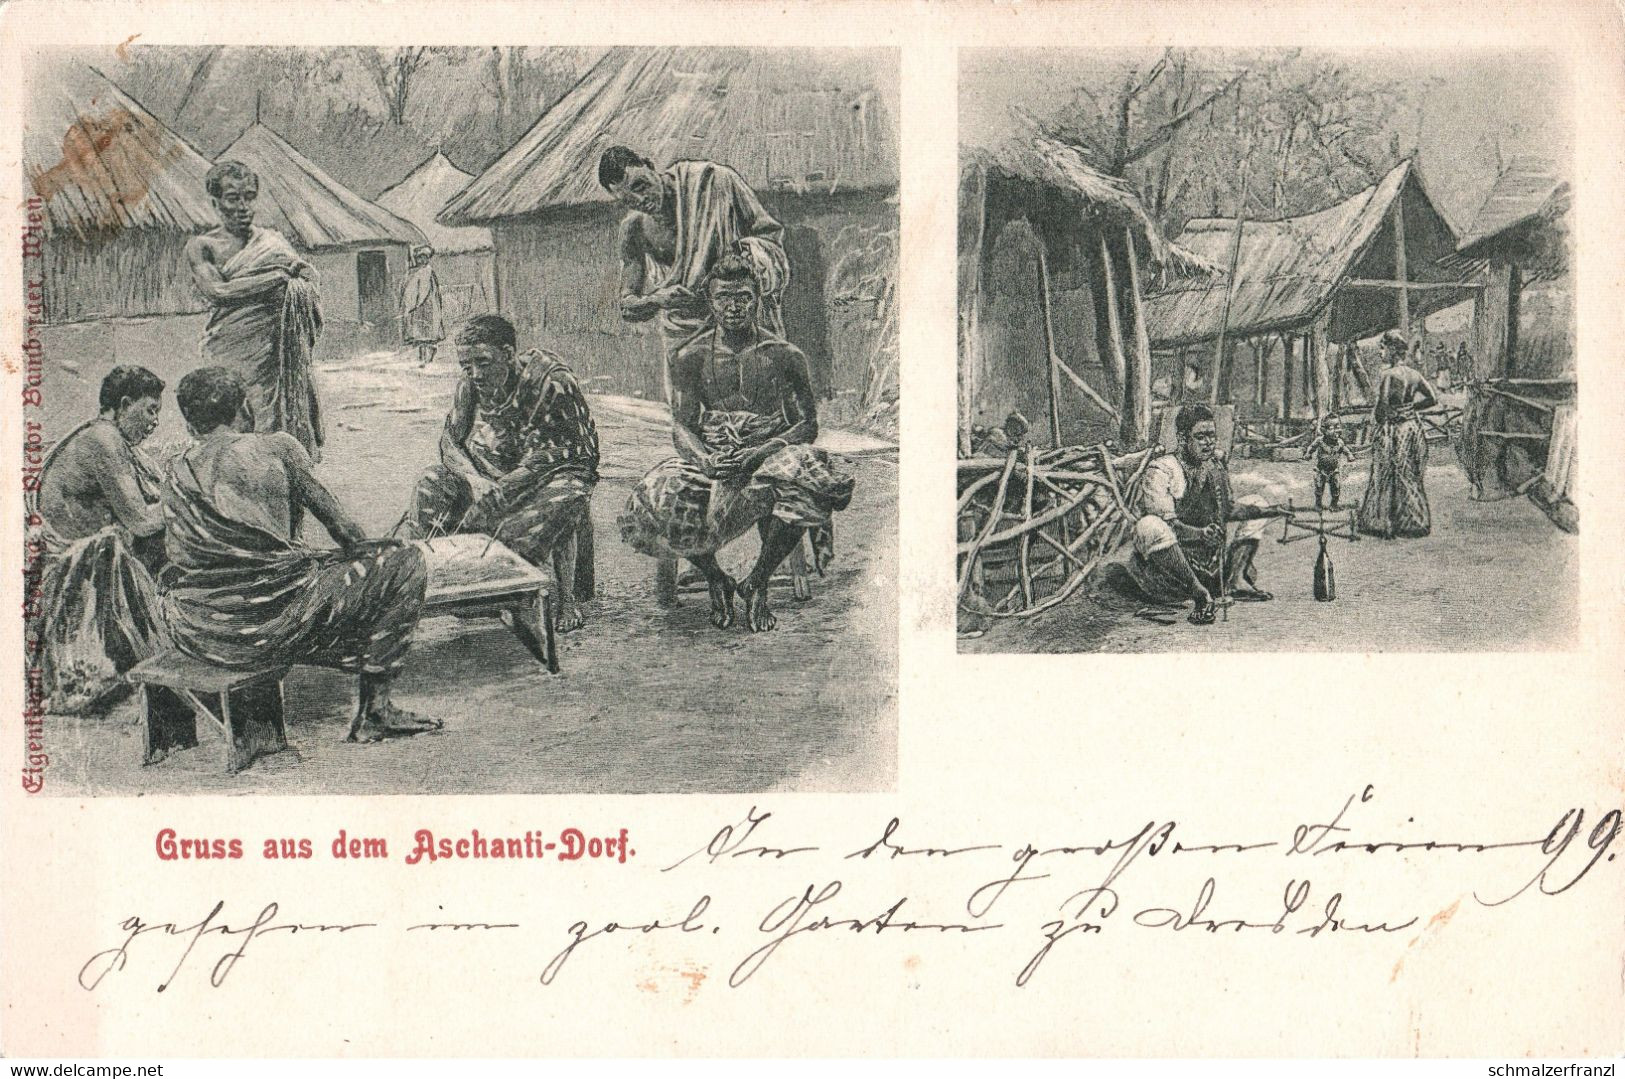 Eigenthum u. Verlag v. Victor Bamberger, Wien.
Gruss aus dem Aschanti-Dorf.
In den großen Ferien 99.
gesehen im zool. Garten zu Dresden
www.delcampe.net
schmalzerfranzl